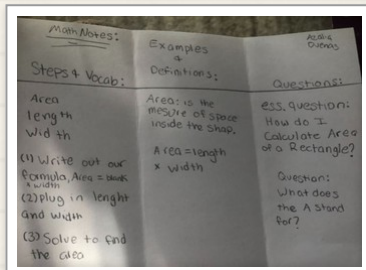 Math Notes:
Steps & Vocab:
Area
length
Width
(1) Write out our
formula, Area = blank
x width
(2) plug in lenght
and width
(3) Solve to find
the area
Examples
&
Definitions:
Area: is the
mesure of space
inside the shap.
Area = length
x width
Questions:
ess. question:
How do I
Calculate Area
of a Rectangle?
Question:
What does
the A Stand
for?